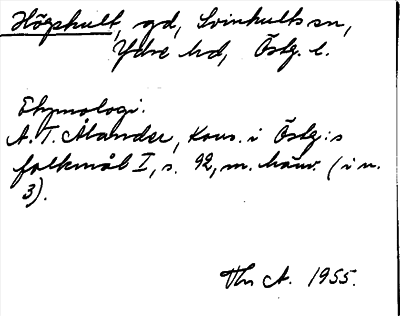 Högshult, gd, Svinhults sn,
Ydre hd, Östg. l.
Etymologi.
A. T. Ålander, Kons. i Östg:s
folkmål I, s. 92, m. hänv. (i n.
3).
Thn A. 1955.